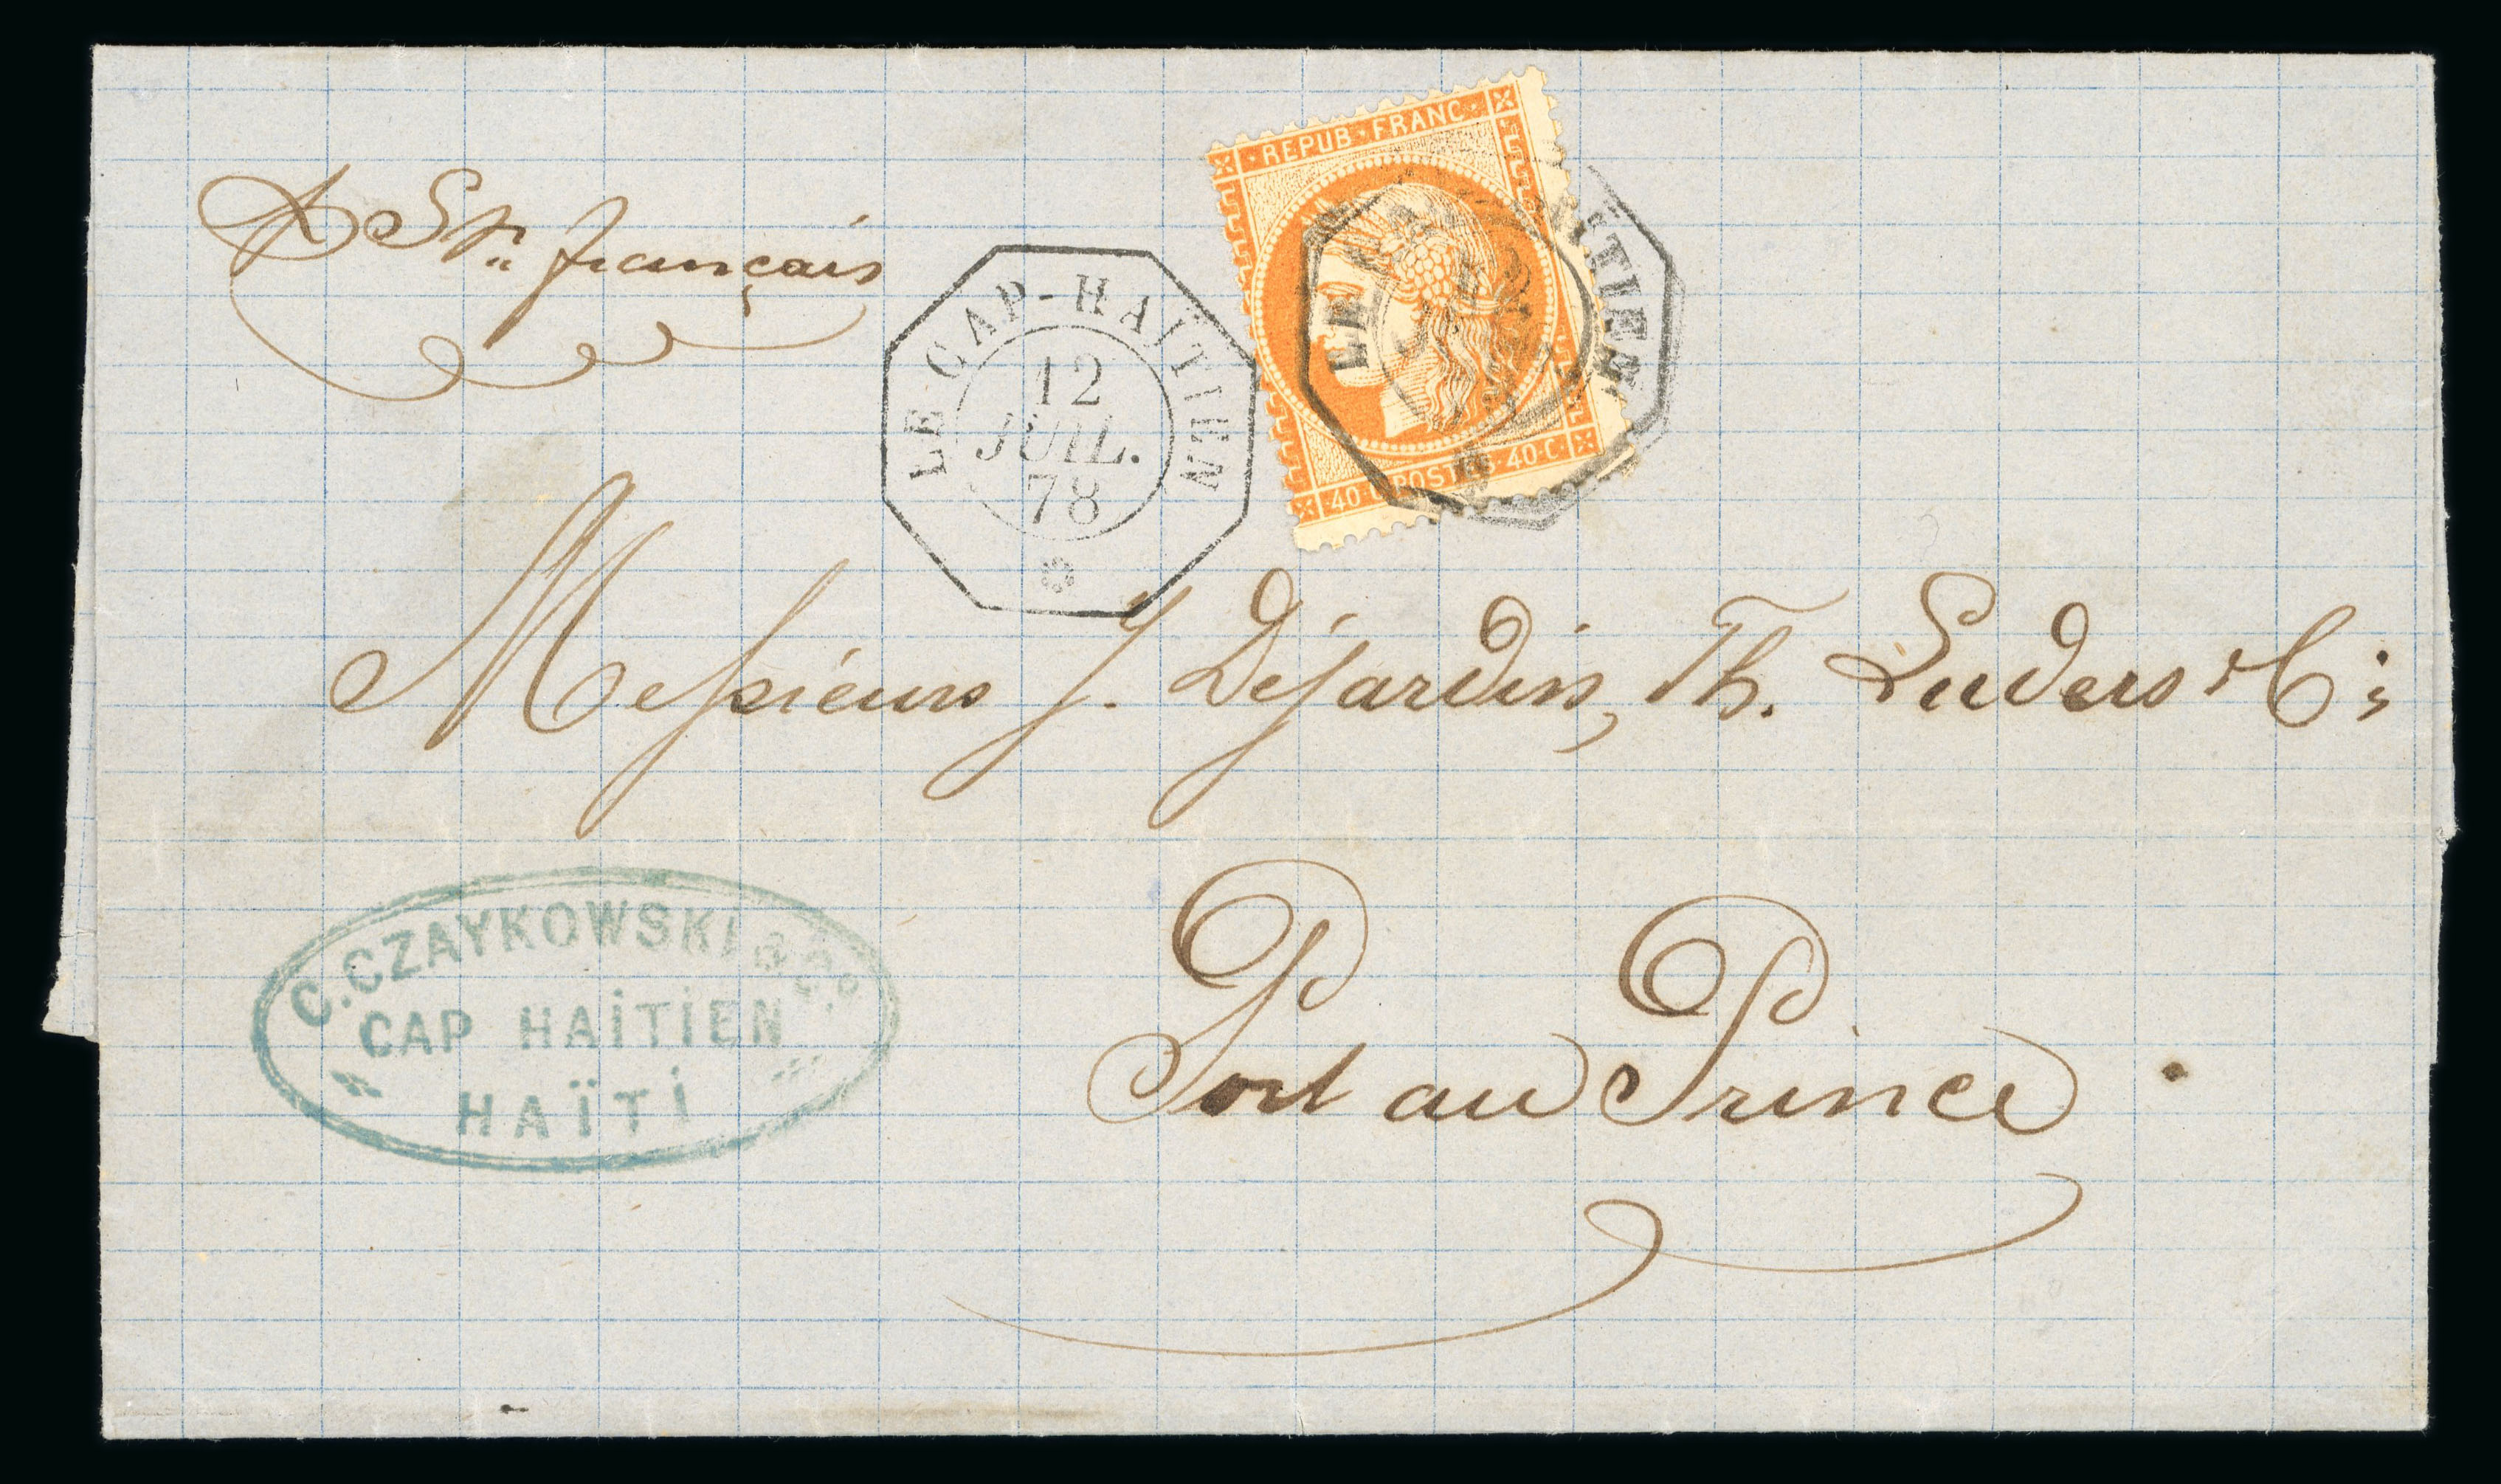 p Str français
REPUB·FRANC·
40·C·POSTES·40·C·
LE CAP-HAÏTIEN
12
JUIL.
78
LE
TIEN
Messieurs J. Déjardin, Th. Luders & Cie
Port au Prince.
C. CZAYKOWSKI & Co.
CAP HAÏTIEN
HAÏTI